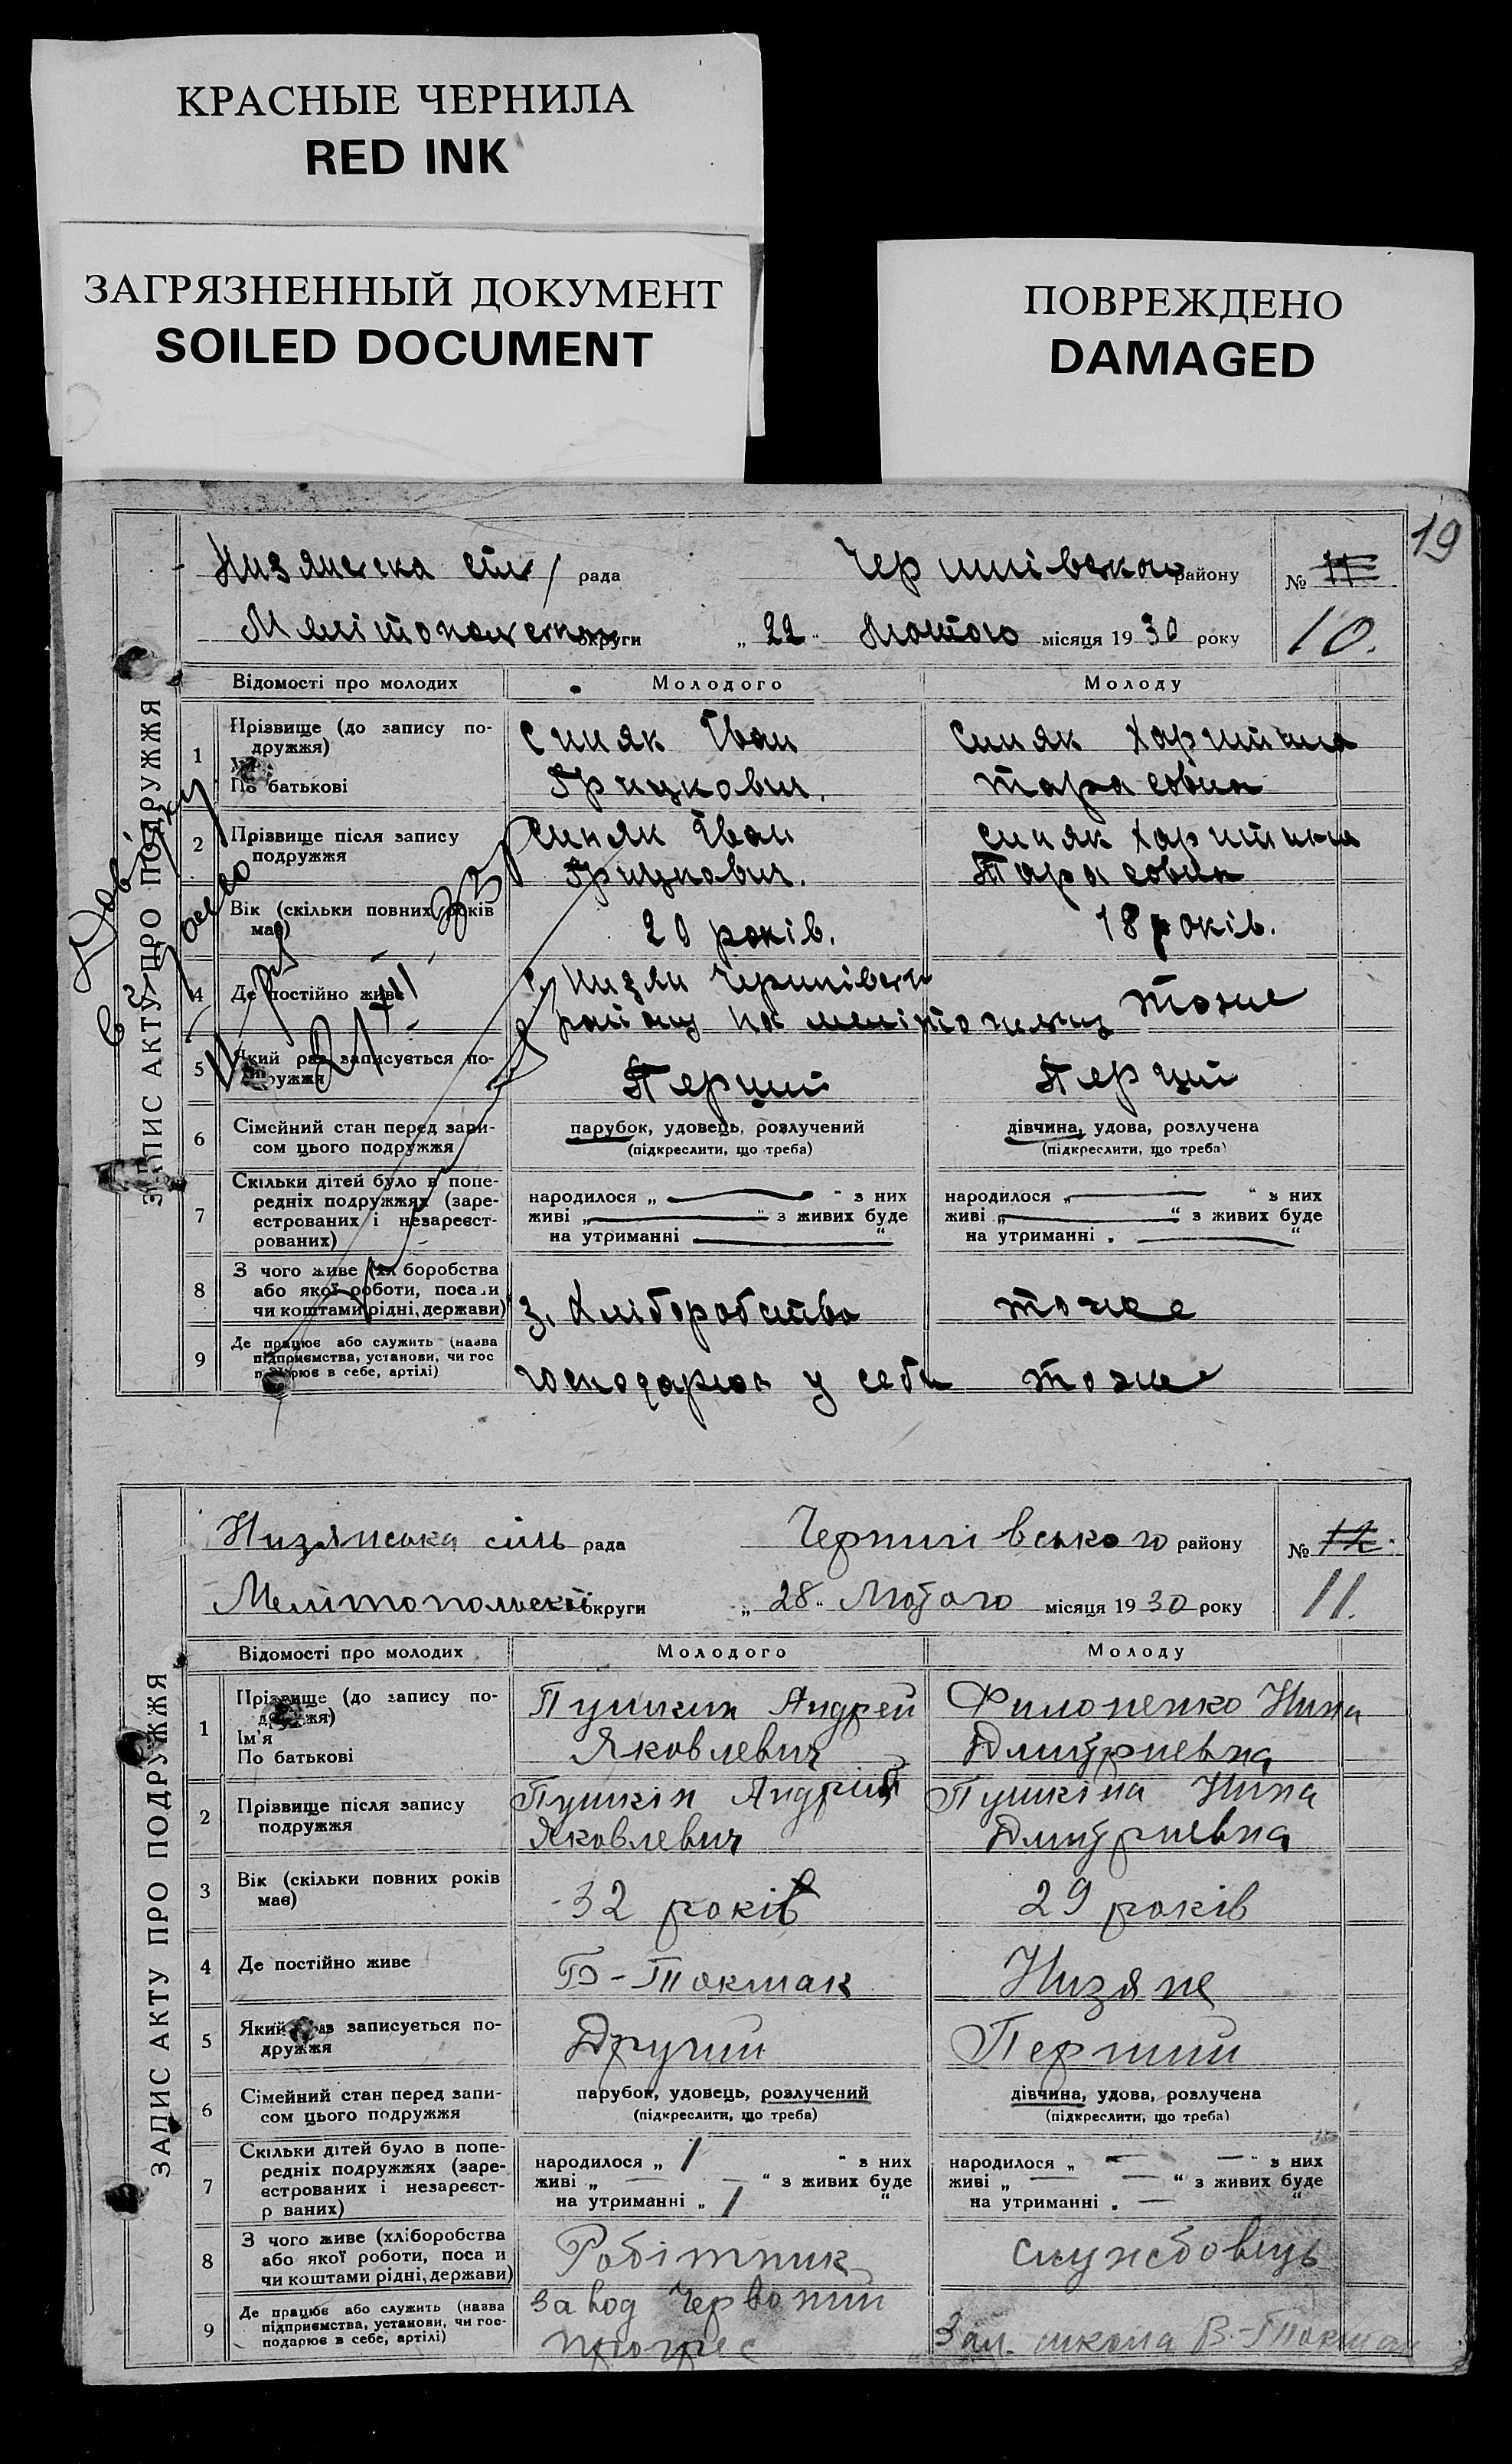 КРАСНЫЕ ЧЕРНИЛА
RED INK
ЗАГРЯЗНЕННЫЙ ДОКУМЕНТ
SOILED DOCUMENT
ПОВРЕЖДЕНО
DAMAGED
19
ЗАПИС АКТУ ПРО ПОДРУЖЖЯ
рада району № 11
округи „ 22 " Лютого місяця 1930 року 10.
Відомості про молодих Молодого Молоду
1 Прізвище (до запису по-
дружжя)
По батькові
Синяк Іван
Грицкович.
Синяк
Тарасовна
2 Прізвище після запису
подружжя
Синяк Іван
Грицкович.
Синяк
Тарасовна
Вік (скільки повних років
має)
20 років.
18 років.
4 Де постійно живе
тоже
5 Який раз записується по-
дружжя
Перший
Перший
6 Сімейний стан перед запи-
сом цього подружжя
парубок, удовець, розлучений
(підкреслити, що треба)
дівчина, удова, розлучена
(підкреслити, що треба)
7 Скільки дітей було в попе-
редніх подружжях (заре-
єстрованих і незареєст-
рованих)
народилося „ — " з них
живі „ — " з живих буде
на утриманні — "
народилося „ — " з них
живі „ — " з живих буде
на утриманні . — "
8 З чого живе боробства
або якої роботи, поса и
чи коштами рідні, держави)
з. Хліборобства
тоже
9 Де працює або служить (назва
підприємства, установи, чи гос
в себе, артілі)
у себе
тоже
ЗАПИС АКТУ ПРО ПОДРУЖЖЯ
Низянська сіль рада Чернигівського району № 12.
Мелітопольскої округи „ 28 " Лютого місяця 1930 року 11.
Відомості про молодих Молодого Молоду
1 Прізвище (до запису по-
дружжя)
Ім'я
По батькові
Пушкин Андрей
Яковлевич
Филоненко Нина
Дмитриевна
2 Прізвище після запису
подружжя
Пушкін Андрій
Яковлевич
Пушкіна Нина
Дмитриевна
3 Вік (скільки повних років
має)
32 років
29 років
4 Де постійно живе
Б-Токмак
Низяне
5 Який раз записується по-
дружжя
Другий
Перший
6 Сімейний стан перед запи-
сом цього подружжя
парубок, удовець, розлучений
(підкреслити, що треба)
дівчина, удова, розлучена
(підкреслити, що треба)
7 Скільки дітей було в попе-
редніх подружжях (заре-
єстрованих і незареєст-
р ваних)
народилося „ 1 " з них
живі „ — — " з живих буде
на утриманні „ 1 "
народилося „ — — " з них
живі „ — — " з живих буде
на утриманні . — "
8 З чого живе (хліборобства
або якої роботи, поса и
чи коштами рідні, держави)
Робітник
службовець
9 Де працює або служить (назва
підприємства, установи, чи гос-
подарює в себе, артілі)
завод Червоний
прогрес
школа В.-Токмак